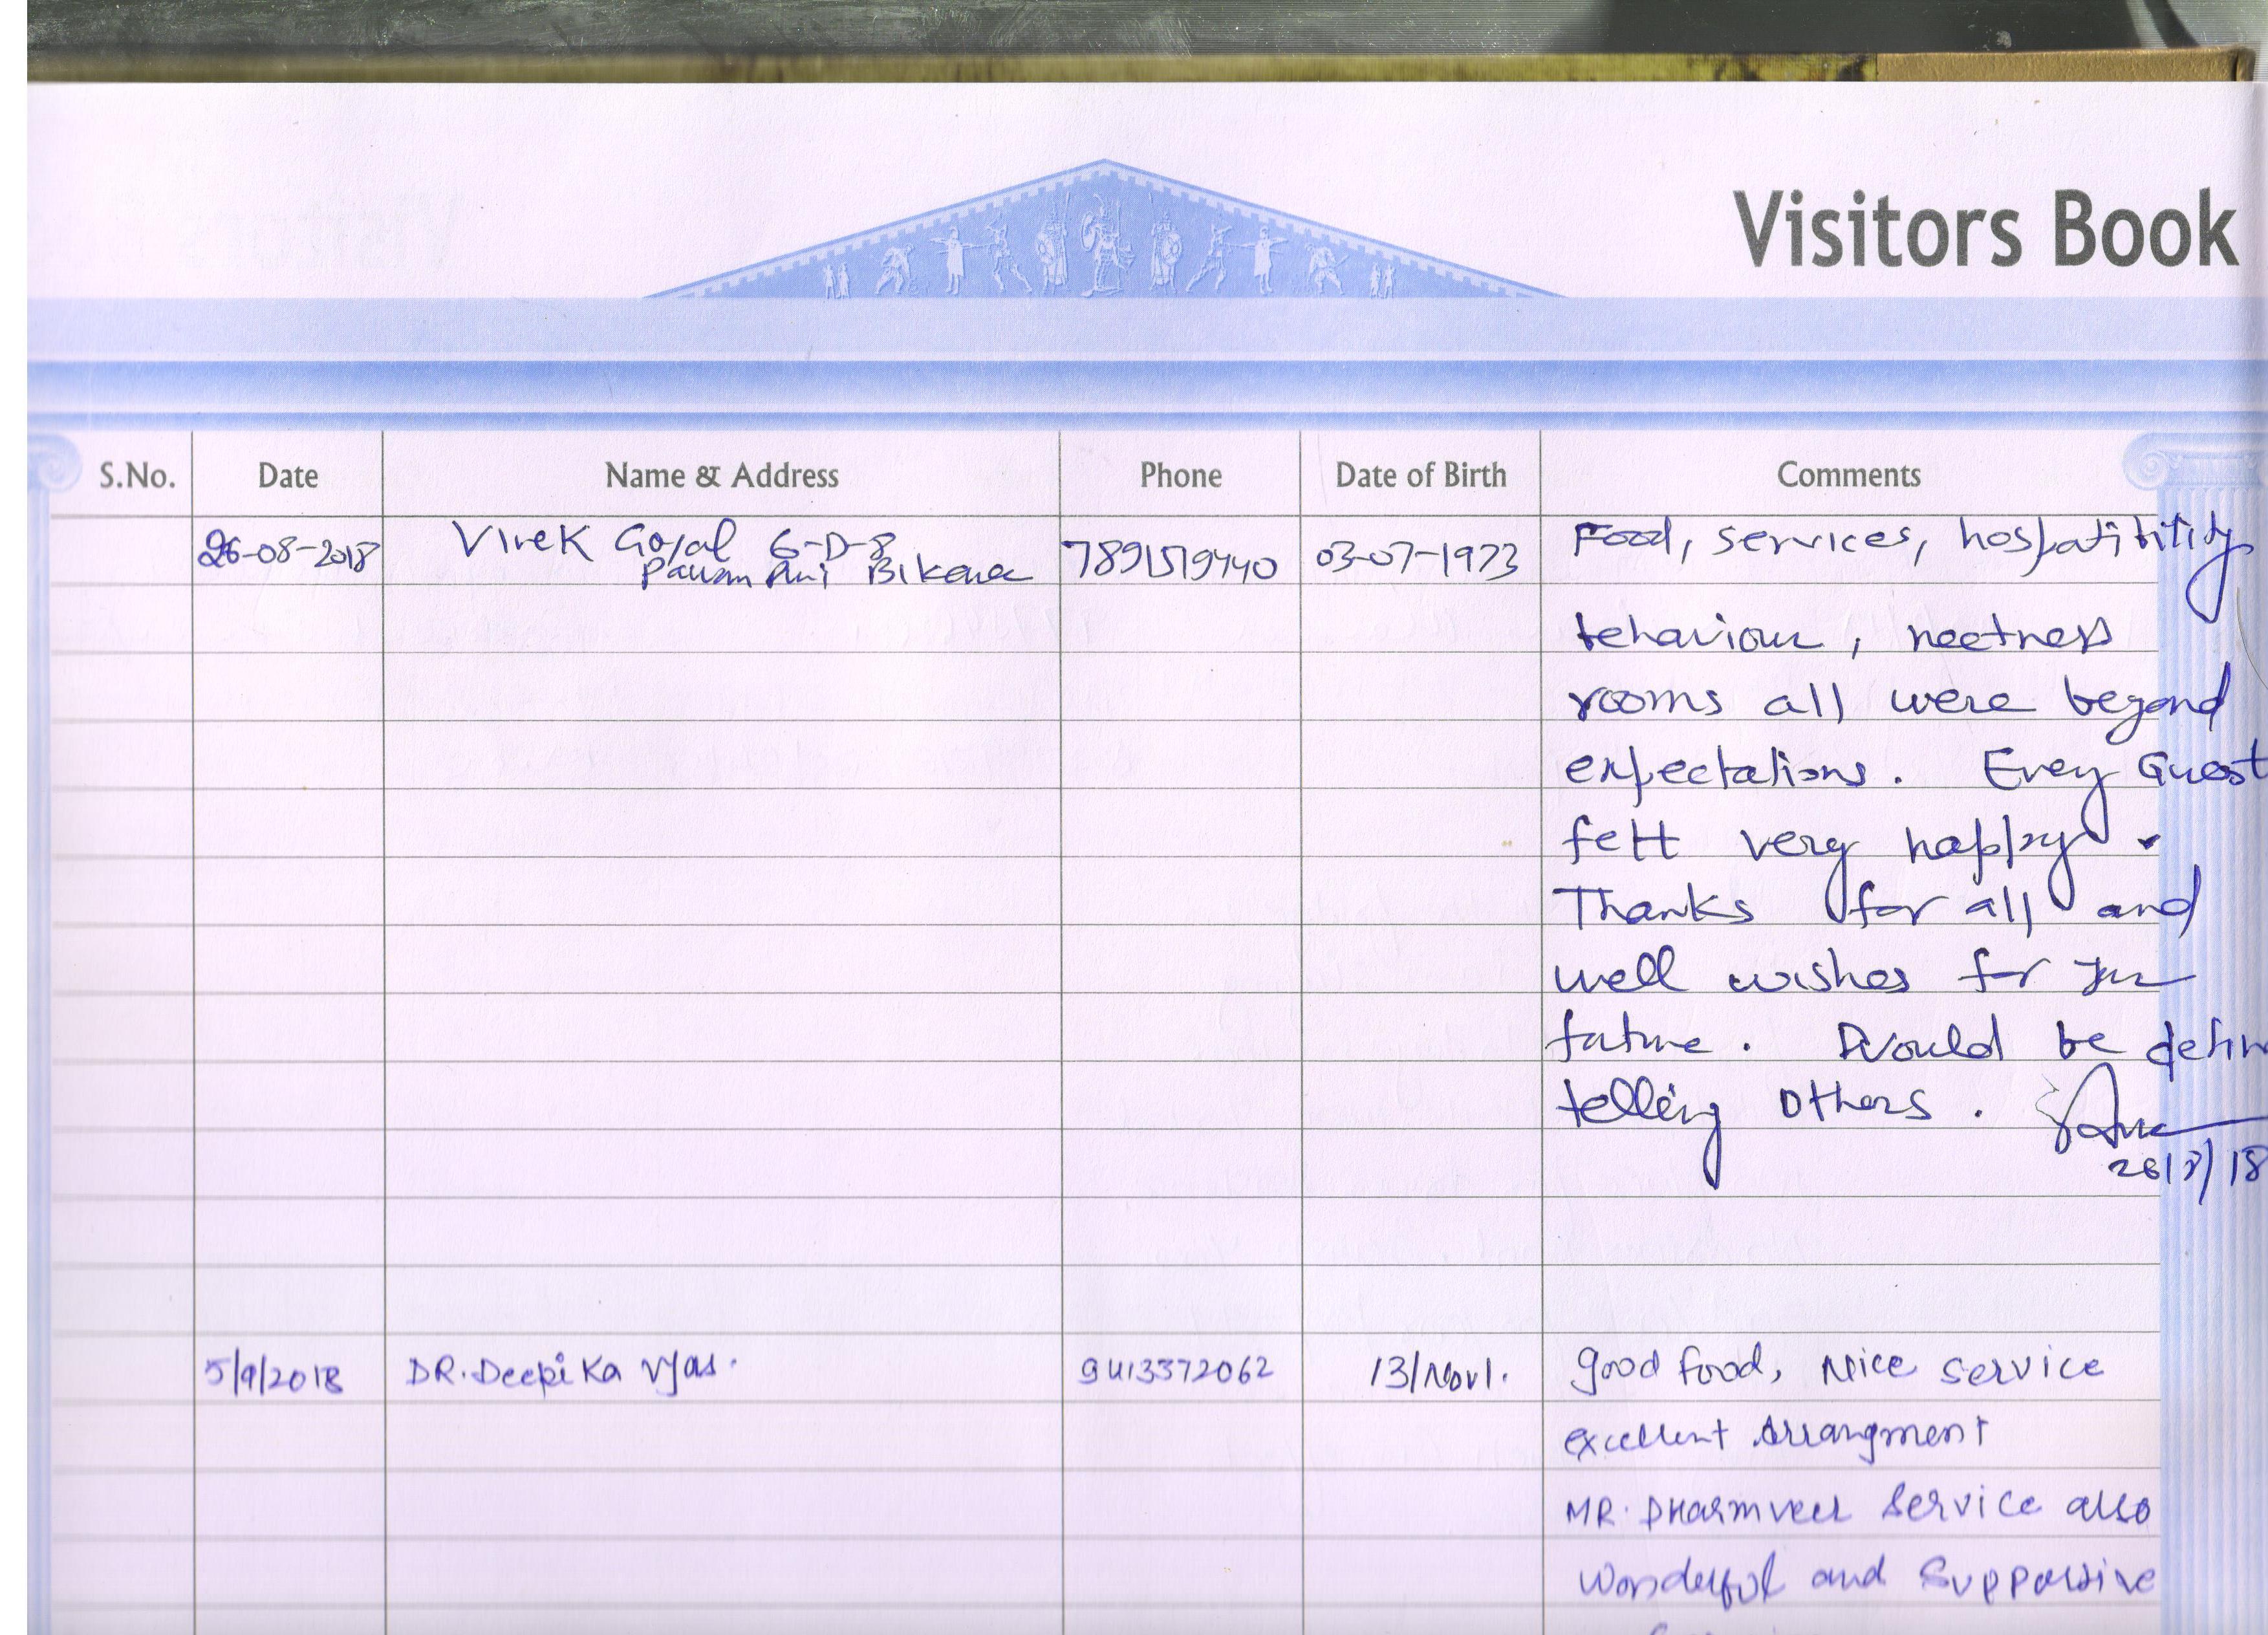 Visitors Book
S.No. Date Name & Address Phone Date of Birth Comments
26-08-2018 Vivek Goyal 6-D-8 7891519440 03-07-1973 Food, services, hospatibility
behaviour, neetness
rooms all were beyond
expectations. Every Guest
felt very happy.
Thanks for all and
well wishes for
future. Would be
telling others.
26/8/18
5/9/2018 DR. Deepika Vyas. 9413372062 13/Nov. good food, Nice service
excellent Arrangment
MR. Dharmveer Service also
wonderful and Supportive